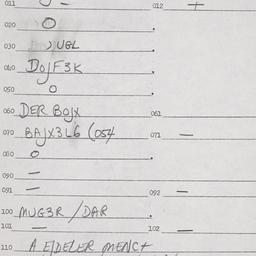 011 — 012 +
020 O .
030 ) UGL .
040 DOJF3K
050 O .
060 DER BOJX 061
070 BAJX3L6 (054 071 —
080 O .
090 —
091 — 092 —
100 MUG3R / DAR .
101 — 102 —
110 A EJDELER MENC+